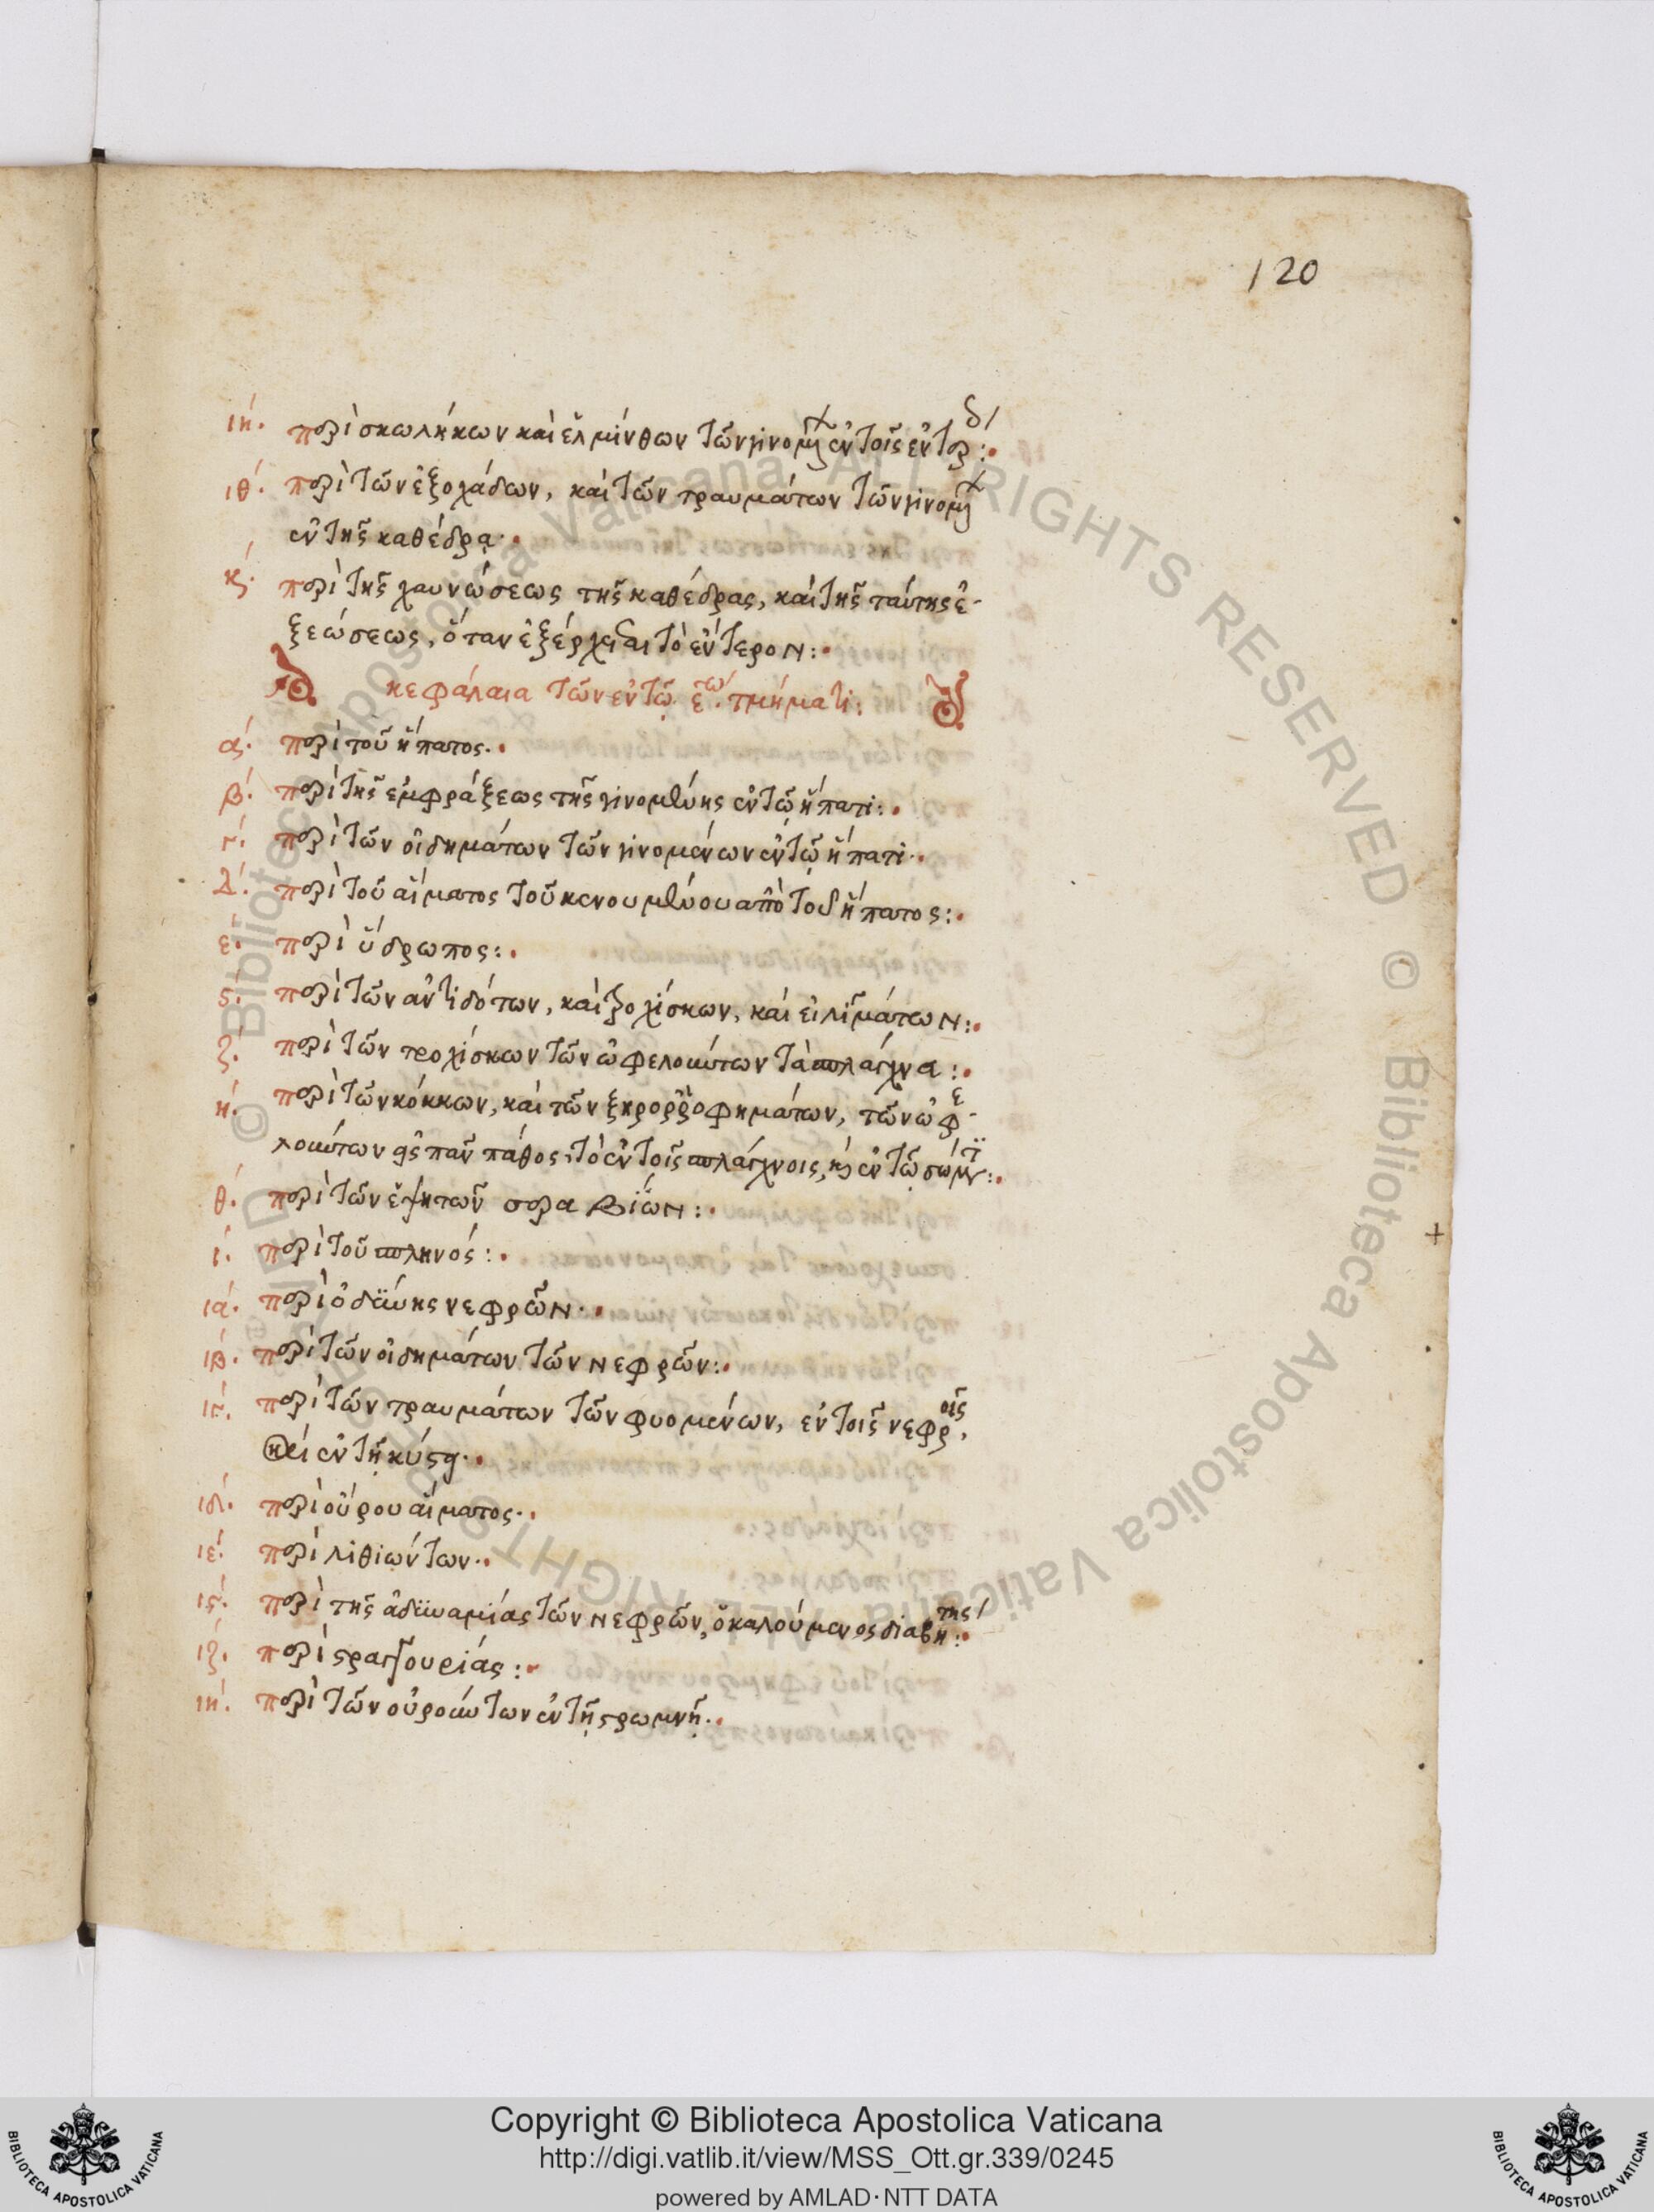 120
ιή. περὶ σκωλήκων καὶ ἑλμίνθων τῶν γινομ ἐν τοῖς ἐντερ δ/ :·
ιθ. περὶ τῶν ἐξοχάδων, καὶ τῶν τραυμάτων τῶν γινομ
ἐν τῆς καθέδρᾳ··
κ. περὶ τῆς χαυνώσεως τῆς καθέδρας, καὶ τῆς ταύτης ἐ-
ξεώσεως, ὅταν ἐξέρχεται τὸ ἔντερον:·
κεφάλαια τῶν ἐν τῷ ε.τω τμήματι:
ά. περὶ τοῦ ἥπατος··
β. περὶ τῆς ἐμφράξεως τῆς γινομένης ἐν τῷ ἥπατι:·
γ. περὶ τῶν οἰδημάτων τῶν γινομένων ἐν τῷ ἥπατι··
δ. περὶ τοῦ αἵματος τοῦ κενουμένου ἀπὸ τοῦ ἥπατος:·
ε. περὶ ὕδρωπος:·
ς. περὶ τῶν ἀντιδότων, καὶ τροχίσκων, καὶ εἰλιγμάτων:·
ζ. περὶ τῶν τροχίσκων τῶν ὠφελούντων τὰ σπλάγχνα:·
η. περὶ τῶν κόκκων, καὶ τῶν ξηρορροφημάτων, τῶν ὠφε-
λούντων εἰς πᾶν πάθος, τὸ ἐν τοῖς σπλάγχνοις, κ ἐν τῷ σώματι:·
θ. περὶ τῶν ἑψητῶν σεραβίων:·
ι. περὶ τοῦ σπληνός:·
ιά. περὶ ὀδύνης νεφρῶν··
ιβ. περὶ τῶν οἰδημάτων τῶν νεφρῶν:·
ιγ. περὶ τῶν τραυμάτων τῶν φυομένων, ἐν τοῖς νεφροῖς,
καὶ ἐν τῇ κύστῃ··
ιδ. περὶ οὔρου αἵματος··
ιε. περὶ λιθιώντων··
ις. περὶ τῆς ἀδυναμίας τῶν νεφρῶν, ὁ καλούμενος διαβήτης:·
ιζ. περὶ στραγγουρίας:·
ιη. περὶ τῶν οὐρούντων ἐν τῇ στρωμνῇ··
© Biblioteca Apostolica Vaticana ALL RIGHTS RESERVED
Copyright © Biblioteca Apostolica Vaticana
http://digi.vatlib.it/view/MSS_Ott.gr.339/0245
powered by AMLAD·NTT DATA
BIBLIOTECA APOSTOLICA VATICANA
BIBLIOTECA APOSTOLICA VATICANA